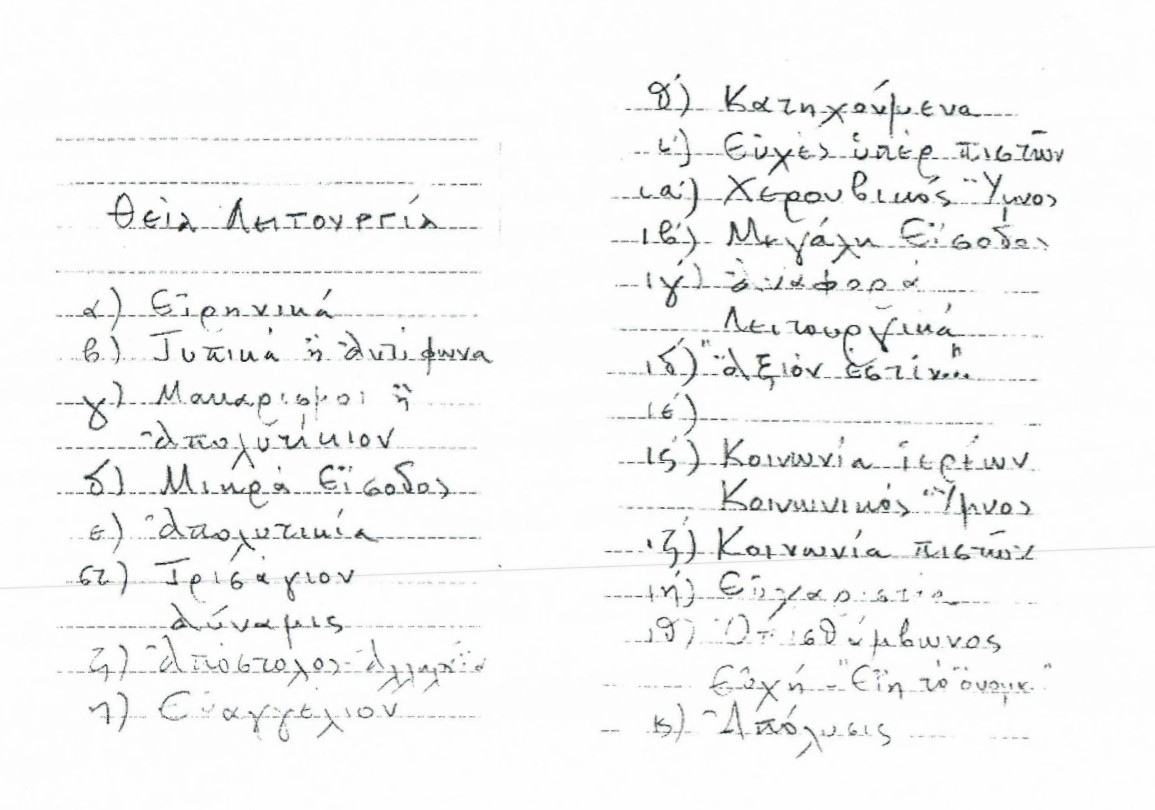 Θεία Λειτουργία
α) Εἰρηνικά
β) Τυπικά ἤ Ἀντίφωνα
γ) Μακαρισμοί ἤ
Ἀπολυτίκιον
δ) Μικρά Εἴσοδος
ε) Ἀπολυτικία
στ) Τρισάγιον
Δύναμις
ζ) Ἀπόστολος - Ἀλληλούια
η) Εὐαγγέλιον
θ') Κατηχούμενα
ι') Εὐχές ὑπέρ πιστῶν
ια') Χερουβικός Ὕμνος
ιβ') Μεγάλη Εἴσοδος
ιγ') Ἀναφορά
Λειτουργικά
ιδ') "Ἄξιόν ἐστίν..."
ιέ)
ις') Κοινωνία ἱερέων
Κοινωνικός Ὕμνος
ιζ') Κοινωνία πιστῶν
ιή) Εὐχαριστία
ιθ') Ὀπισθάμβωνος
Εὐχή - "Εἴη τό ὄνομα"
κ) Ἀπόλυσις